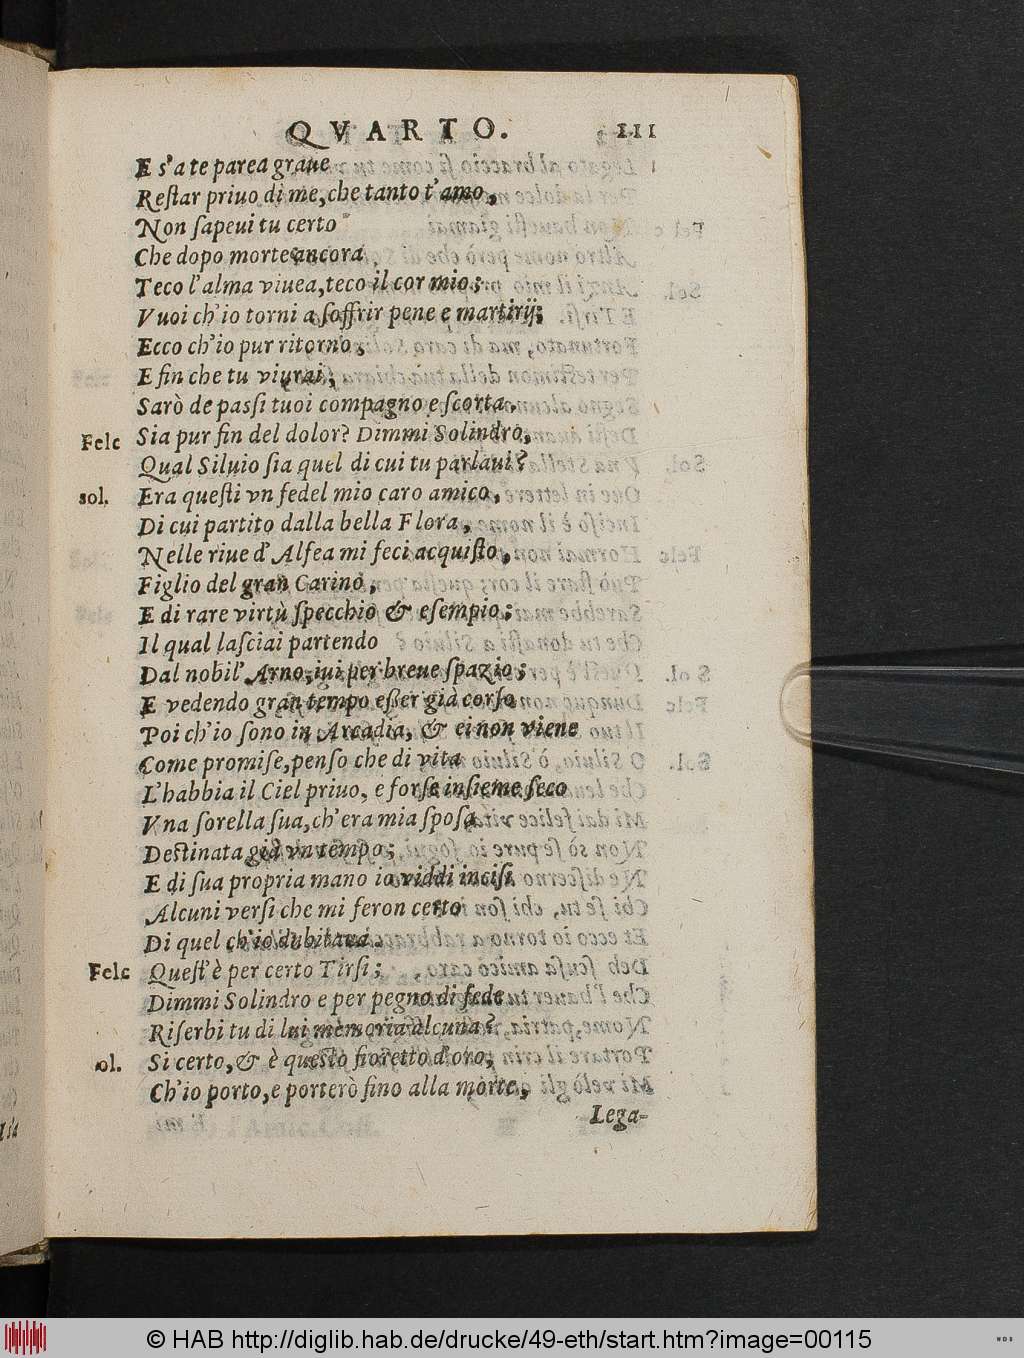 QVARTO. 111
E s'a te parea graue
Reſtar priuo di me, che tanto t'amo,
Non ſapeui tu certo
Che dopo morte ancora
Teco l'alma viuea, teco il cor mio;
Vuoi ch'io torni a ſoffrir pene e martirij;
Ecco ch'io pur ritorno;
E fin che tu viurai;
Sarò de paſsi tuoi compagno e ſcorta.
Felc Sia pur fin del dolor? Dimmi Solindro,
Qual Siluio ſia quel di cui tu parlaui?
sol. Era queſti vn fedel mio caro amico,
Di cui partito dalla bella Flora,
Nelle riue d'Alfea mi feci acquiſto,
Figlio del gran Carino,
E di rare virtù ſpecchio & eſempio;
Il qual laſciai partendo
Dal nobil' Arno, iui per breue ſpazio;
E vedendo gran tempo eſſer già corſo
Poi ch'io ſono in Arcadia, & ei non viene
Come promiſe, penſo che di vita
L'habbia il Ciel priuo, e forſe inſieme ſeco
Vna ſorella ſua, ch'era mia ſpoſa
Deſtinata già vn tempo;
E di ſua propria mano io viddi inciſi
Alcuni verſi che mi feron certo
Di quel ch'io dubitaua.
Felc Queſt'è per certo Tirſi;
Dimmi Solindro e per pegno di fede
Riſerbi tu di lui memoria alcuna?
sol. Si certo, & è queſto fioretto d'oro,
Ch'io porto, e porterò fino alla morte,
Lega-
© HAB http://diglib.hab.de/drucke/49-eth/start.htm?image=00115